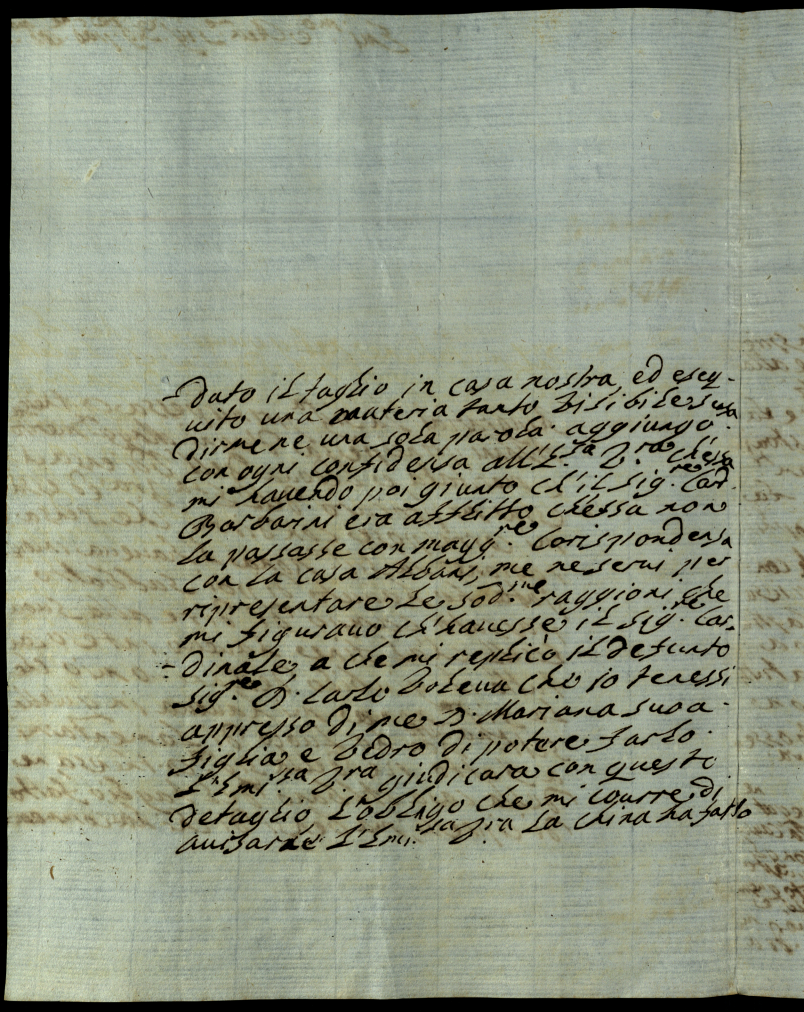 -dato il taglio in casa nostra, ed eseq-
uito una materia tanto visibile senza
dirmene una sola parola. aggiungo
con ogni confidensa all'E.za V.ra ch'essa
mi havendo poi giunto ch'il sig.re Card.
Barbarini era afflitto ch'essa non
la passasse con magg.re Corispondensa
con la casa Albani, me ne servi per
ripresentare le sod.me raggioni che
mi figuravo ch'havesse il sig.re Car-
-dinale a che mi replicò il defunto
sig.re D. Carlo voleva che io tenessi
appresso di me D. Mariana sua
figlia e vedro di potere farlo.
L'Emi.za V.ra giudicara con questo
detaglio, l'obligo che mi courre di
avisarne l'Emi.za V.ra la china ha fatto